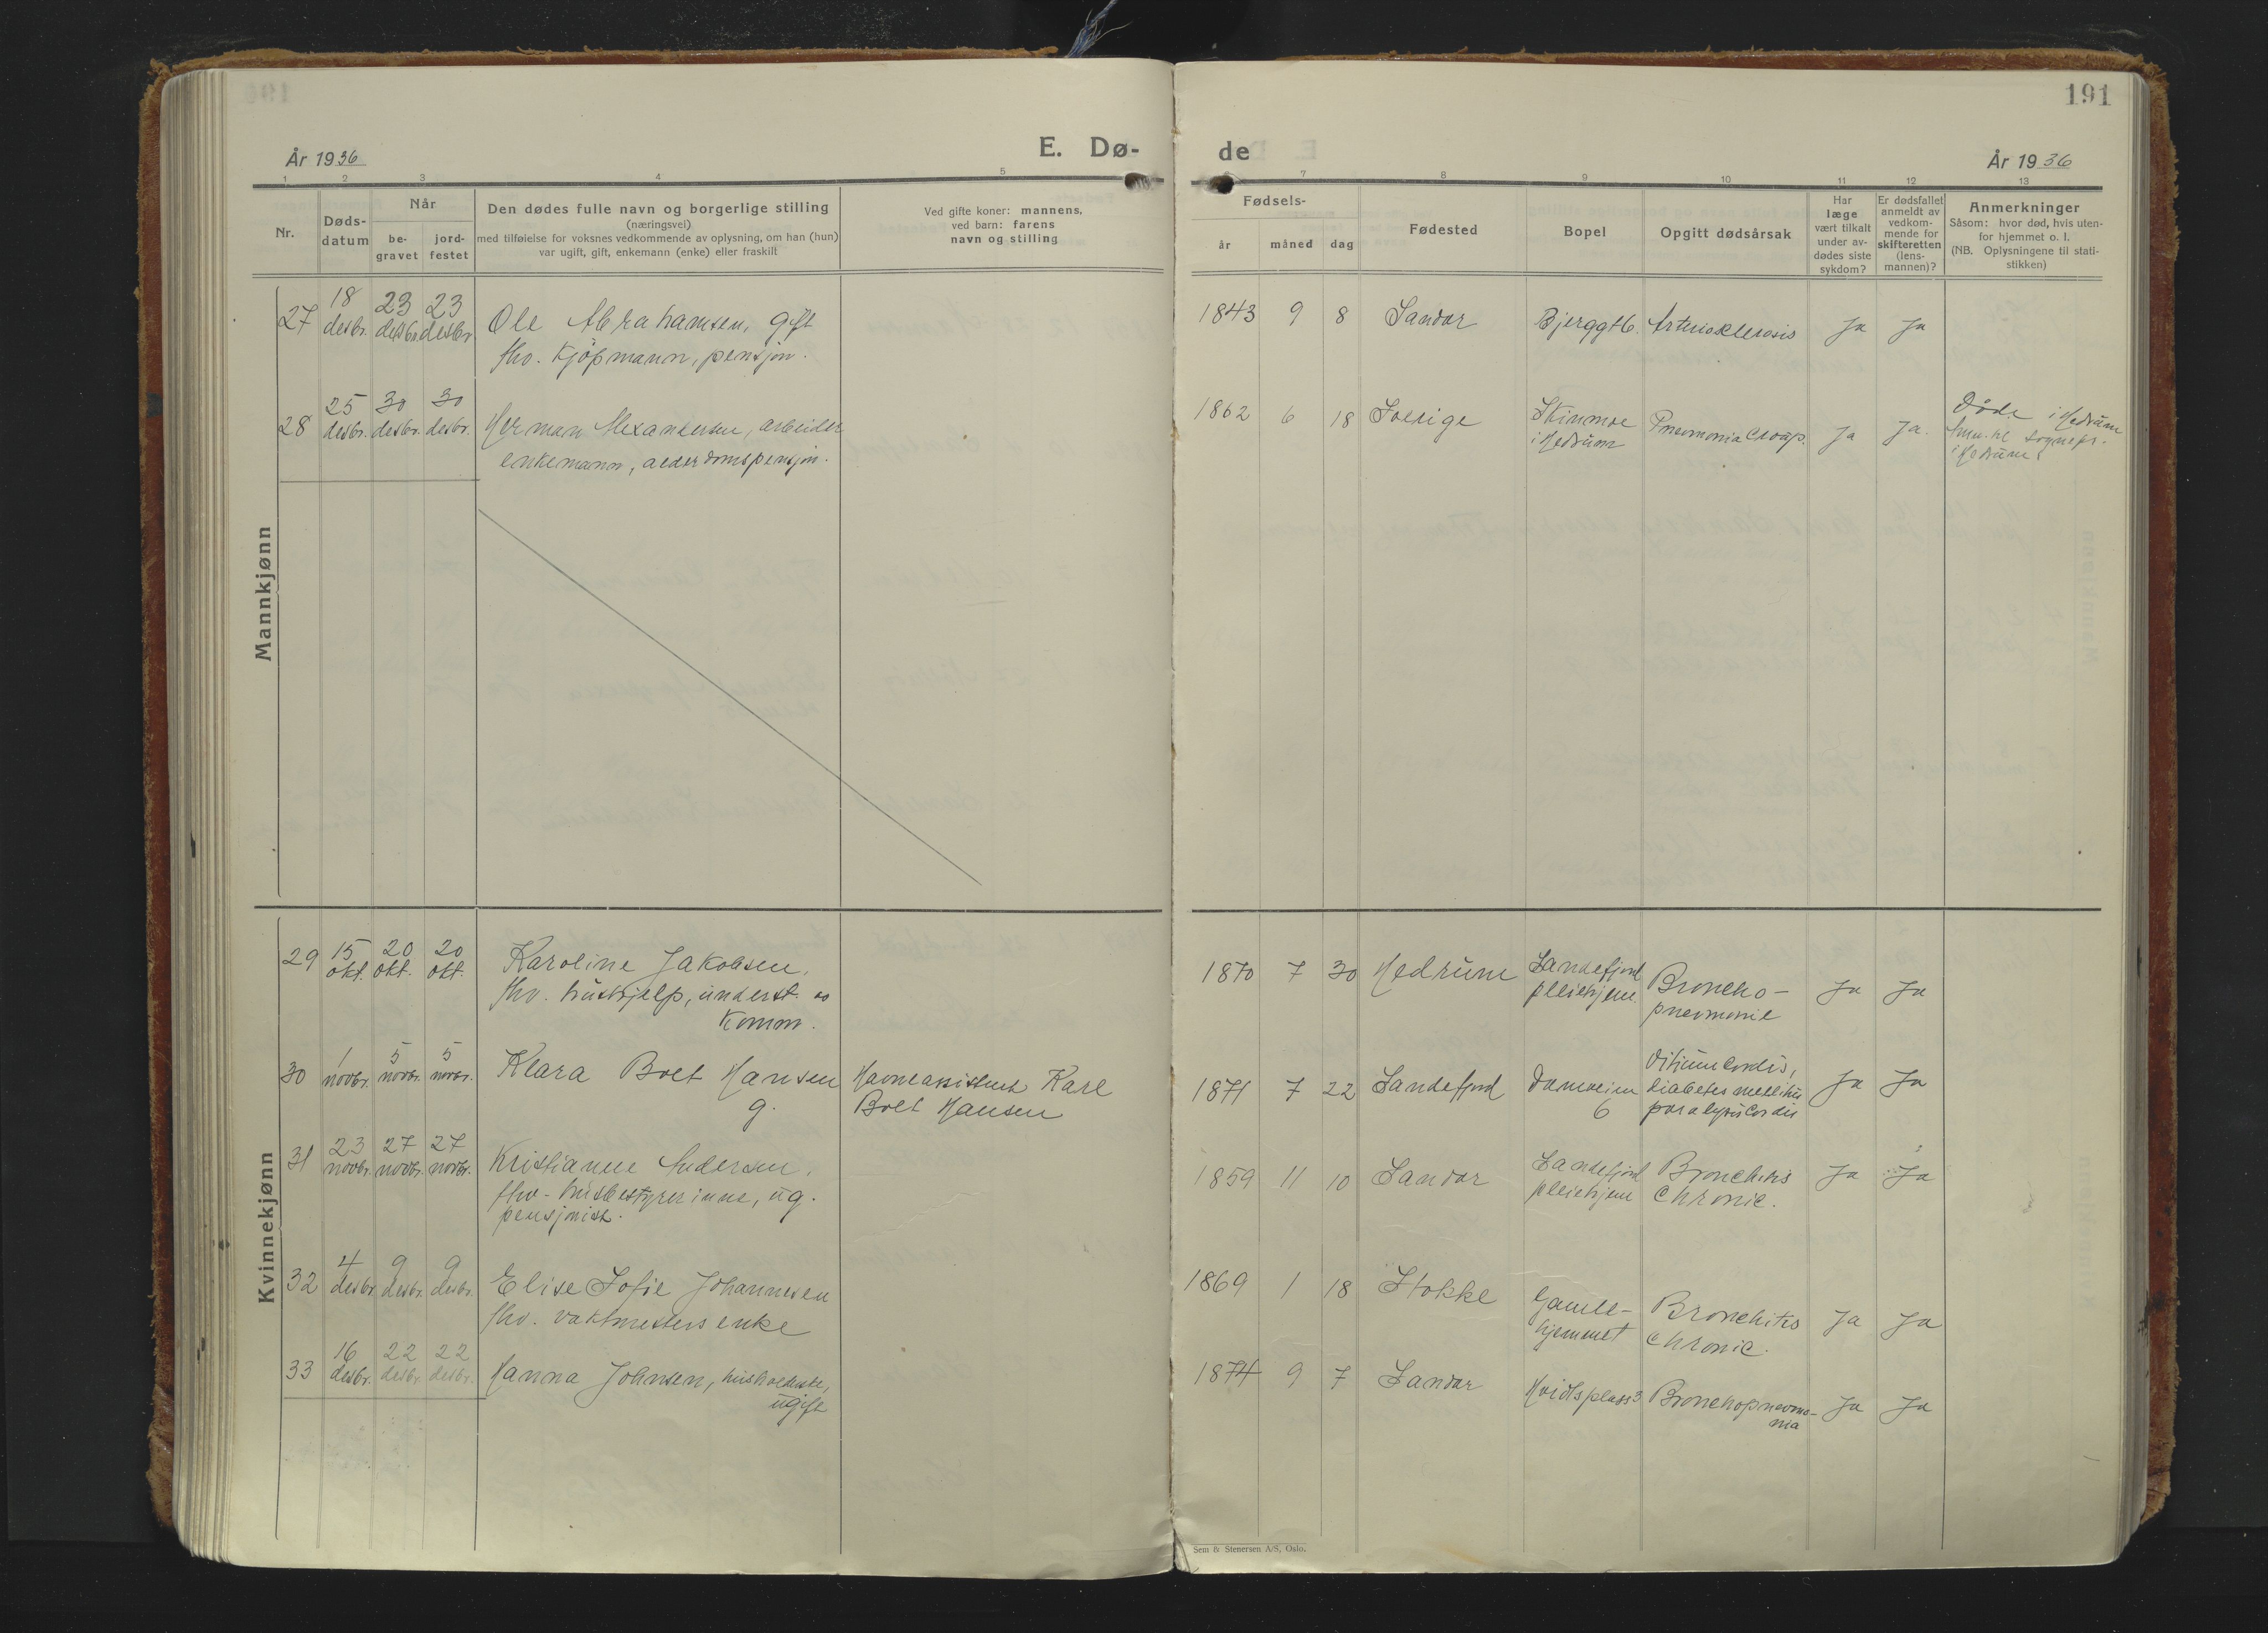 191
E. Dø-
de
År 1936
År 1936
1 2 3 4 5
7 8 9 10 11 12 13
Nr.
Døds-
datum
Når
be-
gravet
jord-
festet
Den dødes fulle navn og borgerlige stilling
(næringsvei)
med tilføielse for voksnes vedkommende av oplysning, om han (hun)
var ugift, gift, enkemann (enke) eller fraskilt
Ved gifte koner: mannens,
ved barn: farens
navn og stilling
Fødsels-
år måned dag
Fødested
Bopel
Opgitt dødsårsak
Har
læge
vært tilkalt
under av-
dødes siste
sykdom?
Er dødsfallet
anmeldt av
vedkom-
mende for
skifteretten
(lens-
mannen)?
Anmerkninger
Såsom: hvor død, hvis uten-
for hjemmet o. l.
(NB. Oplysningene til stati-
stikken)
Mannkjønn
27 18 desbr. 23 desbr. 23 desbr. Ole Abrahamsen, gift
fhv. kjøpmann, pensjon.
1843 9 8 Sandar Bjerggt 6. Arteriosklerosis Ja Ja
28 25 desbr. 30 desbr. 30 desbr. Herman Alexandersen, arbeider
enkemann, alderdomspensjon.
1862 6 18 Sverige Skinmoe
i Hedrum
Pneumonia Croup. Ja Ja.
Døde i Hedrum
sognepr.
i Hedrum.
Kvinnekjønn
29 15 okt. 20 okt. 20 okt. Karoline Jakobsen,
fhv. hushjelp, underst. av
komm.
1870 7 30 Hedrum Sandefjord
pleiehjem
Broncho-
pneumonie
Ja Ja
30 1 novbr. 5 novbr. 5 novbr. Klara Bolt Hansen
g.
Havneassistent Karl
Bolt Hansen
1871 7 22 Sandefjord
6
Vitium Cordis,
diabetes mellitus
paralysis Cordis
Ja Ja
31 23 novbr. 27 novbr. 27 novbr. Kristianne Andersen,
fhv. husbestyrerinne, ug.
pensjonist.
1859 11 10 Sandar Sandefjord
pleiehjem
Bronchitis
chronic.
Ja Ja
32 4 desbr. 9 desbr. 9 desbr. Elise Sofie Johannesen
fhv. vaktmesters enke
1869 1 18 Stokke Gamle-
hjemmet
Bronchitis
chronic.
Ja Ja
33 16 desbr. 22 desbr. 22 desbr. Hanna Johnsen, husholderske,
ugift
1874 9 7 Sandar Hvidtsplass 3 Bronchopneumo-
nia
Ja Ja
Sem & Stenersen A/S, Oslo.